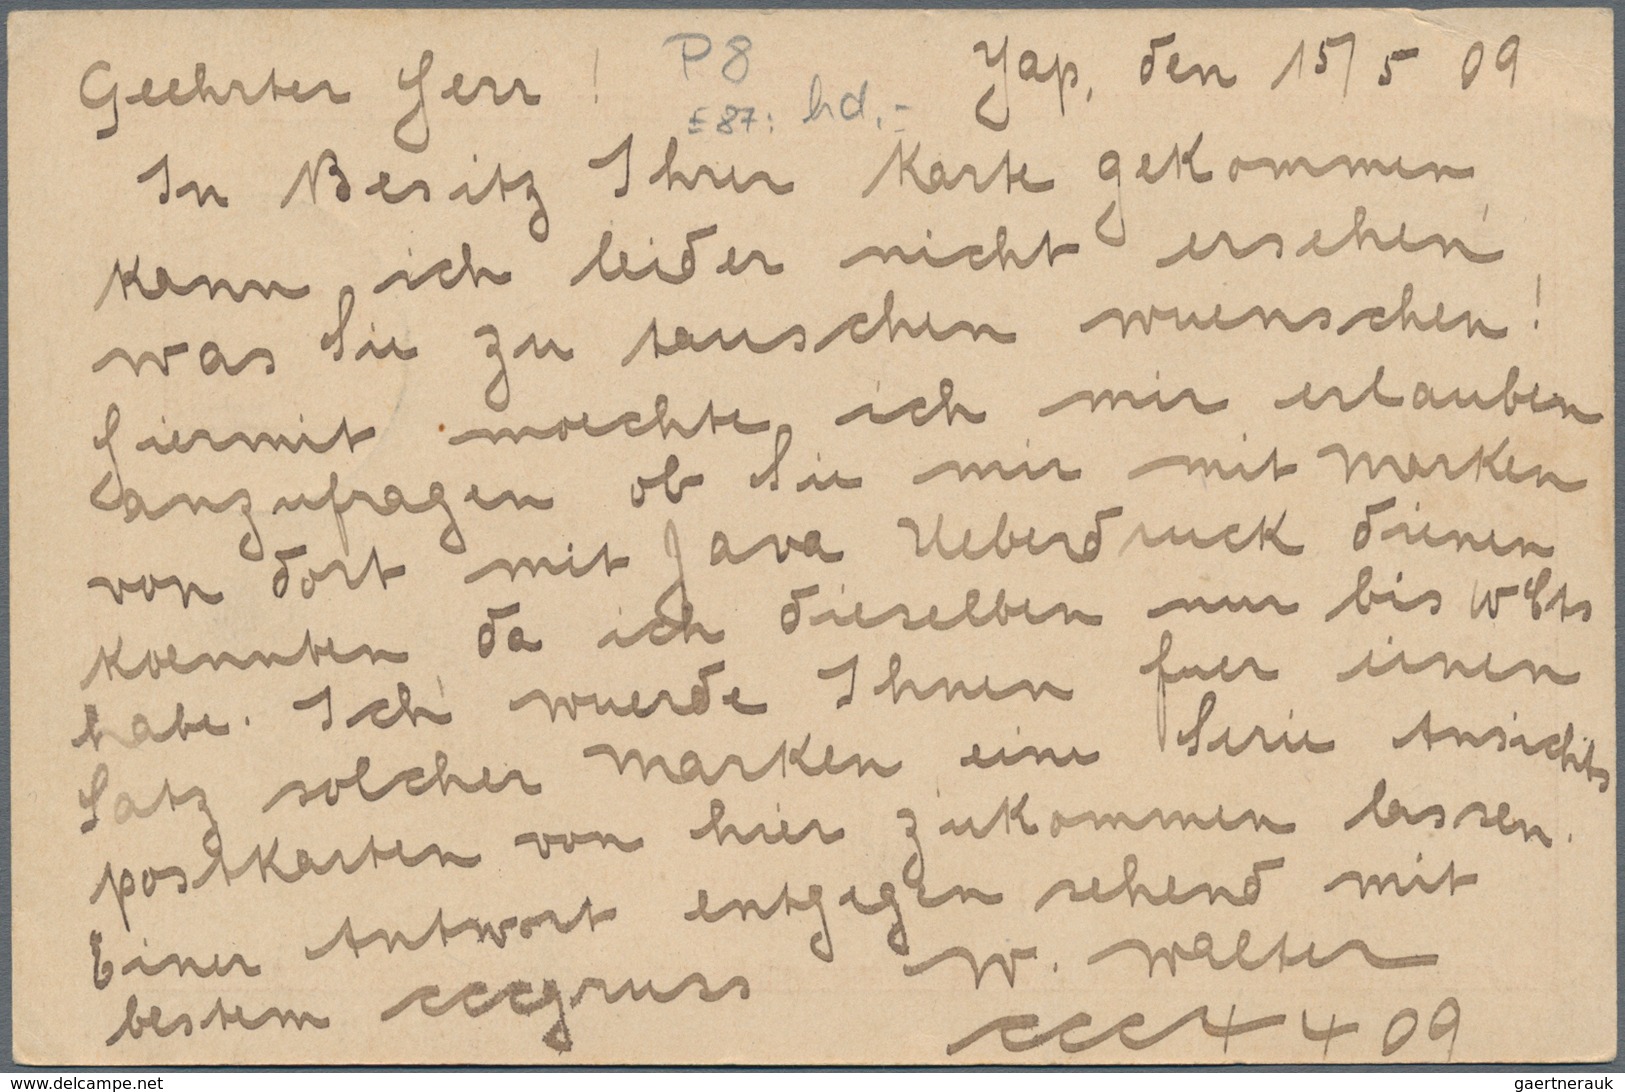 P8
E87: hd.-
Geehrter Herr! Yap, den 15/5 09
In Besitz Ihrer Karte gekommen
kann ich leider nicht ersehen
was Sie zu tauschen wuenschen!
Hiermit moechte ich mir erlauben
anzufragen ob Sie mir mit Marken
von dort mit Java Ueberdruck dienen
koennten da ich dieselben nur bis 10 Cts
habe. Ich wuerde Ihnen fuer einen
Satz solcher Marken eine Serie Ansichts
postkarten von hier zukommen lassen.
Einer Antwort entgegen sehend mit
bestem cccgruss W. Walter
ccc 4409
www.delcampe.net
gaertnerauk